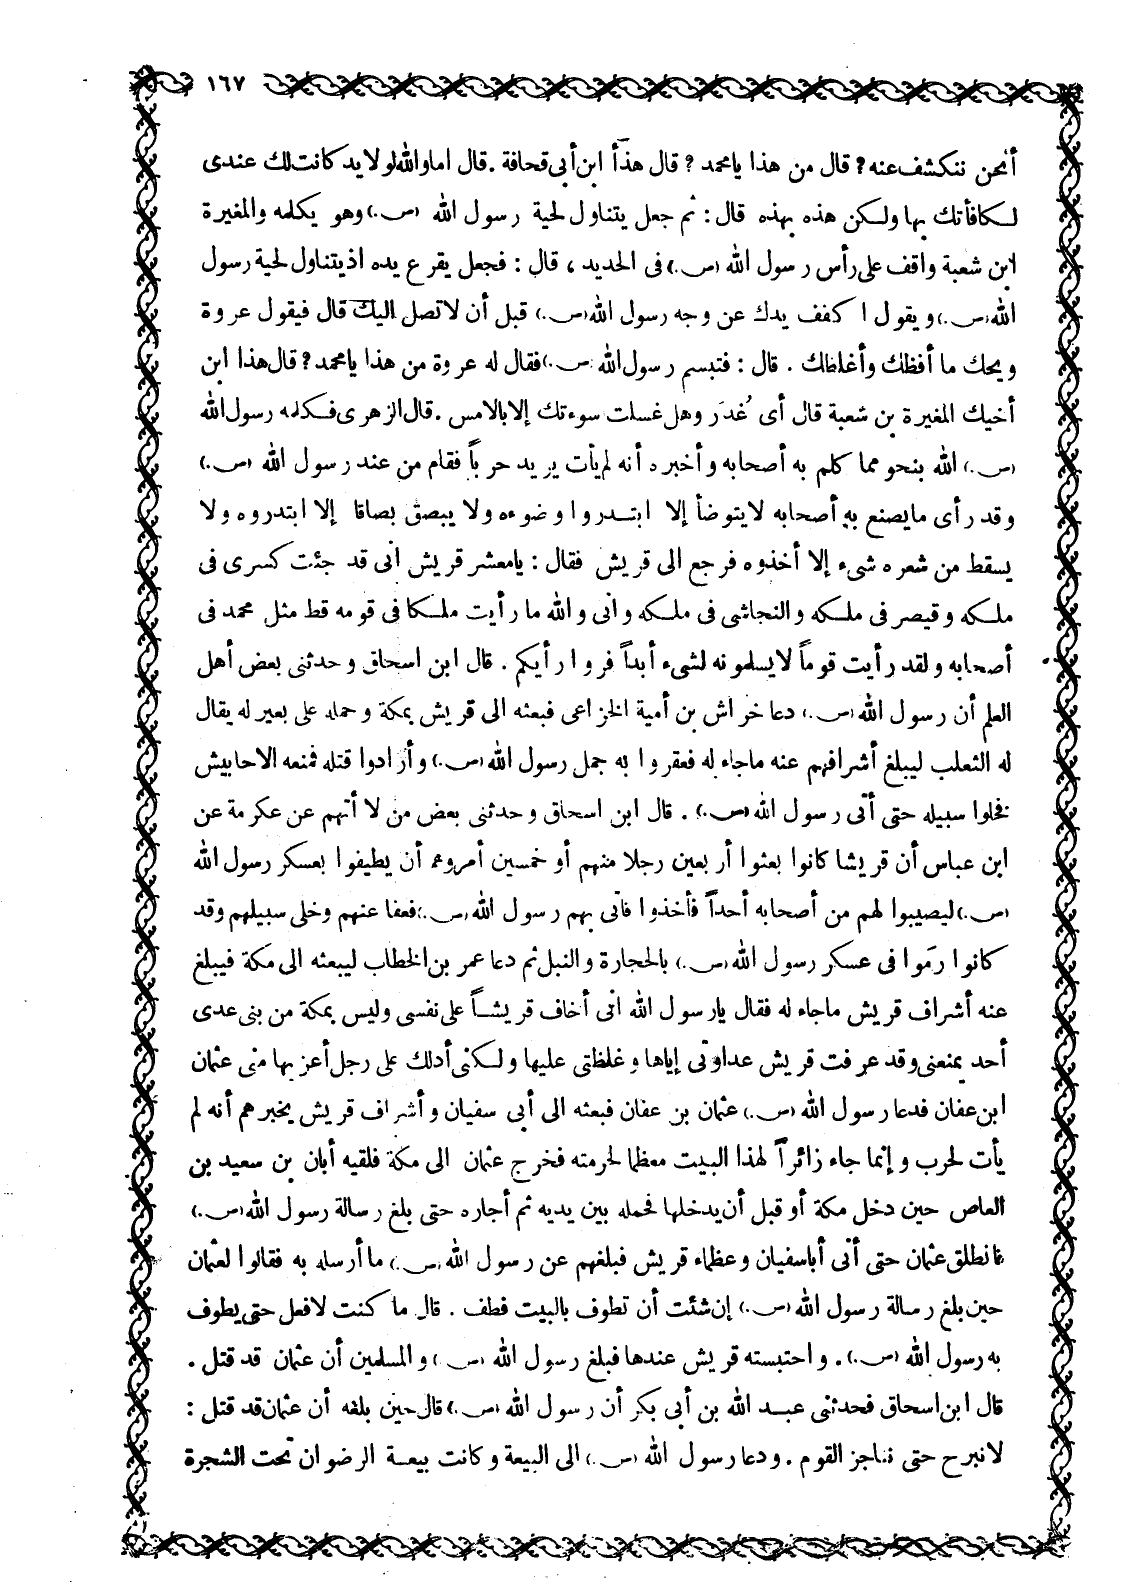 ١٦٧
أنحن ننكشف عنه؟ قال من هذا يا محمد؟ قال هذا ابن أبي قحافة. قال اما والله لولا يد كانت لك عندى
لكافأتك بها ولكن هذه بهذه قال: ثم جعل يتناول لحية رسول الله (ص.) وهو يكلمه والمغيرة
ابن شعبة واقف على رأس رسول الله (ص.) فى الحديد، قال: فجعل يقرع يده اذ يتناول لحية رسول
الله (ص.) ويقول اكفف يدك عن وجه رسول الله (ص.) قبل أن لا تصل اليك قال فيقول عروة
ويحك ما أفظك وأغلظك. قال: فتبسم رسول الله (ص.) فقال له عروة من هذا يا محمد؟ قال هذا ابن
أخيك المغيرة بن شعبة قال أى غُدَر وهل غسلت سوءتك إلا بالامس. قال الزهرى فكلمه رسول الله
(ص.) الله بنحو مما كلم به أصحابه وأخبره أنه لم يأت يريد حرباً فقام من عند رسول الله (ص.)
وقد رأى ما يصنع به أصحابه لا يتوضأ إلا ابتدروا وضوءه ولا يبصق بصاقا إلا ابتدروه ولا
يسقط من شعره شىء إلا أخذوه فرجع الى قريش فقال: يا معشر قريش انى قد جئت كسرى فى
ملكه وقيصر فى ملكه والنجاشى فى ملكه وانى والله ما رأيت ملكا فى قومه قط مثل محمد فى
أصحابه ولقد رأيت قوماً لا يسلمونه لشىء أبداً فروا رأيكم. قال ابن اسحاق وحدثنى بعض أهل
العلم أن رسول الله (ص.) دعا خراش بن أمية الخزاعى فبعثه الى قريش بمكة وحمله على بعير له يقال
له الثعلب ليبلغ أشرافهم عنه ما جاء له فعقروا به جمل رسول الله (ص.) وأرادوا قتله فمنعه الاحابيش
فخلوا سبيله حتى أتى رسول الله (ص.). قال ابن اسحاق وحدثنى بعض من لا أتهم عن عكرمة عن
ابن عباس أن قريشا كانوا بعثوا أربعين رجلا منهم أو خمسين أمروهم أن يطيفوا بعسكر رسول الله
(ص.) ليصيبوا لهم من أصحابه أحداً فأخذوا فاتى بهم رسول الله (ص.) فعفا عنهم وخلى سبيلهم وقد
كانوا رموا فى عسكر رسول الله (ص.) بالحجارة والنبل ثم دعا عمر بن الخطاب ليبعثه الى مكة فيبلغ
عنه أشراف قريش ما جاء له فقال يا رسول الله انى أخاف قريشاً على نفسى وليس بمكة من بنى عدى
أحد يمنعنى وقد عرفت قريش عداوتى إياها وغلظتى عليها ولكنى أدلك على رجل أعز بها منى عثمان
ابن عفان فدعا رسول الله (ص.) عثمان بن عفان فبعثه الى أبى سفيان وأشراف قريش يخبرهم أنه لم
يأت لحرب وإنما جاء زائراً لهذا البيت معظما لحرمته فخرج عثمان الى مكة فلقيه أبان بن سعيد بن
العاص حين دخل مكة أو قبل أن يدخلها فحمله بين يديه ثم أجاره حتى بلغ رسالة رسول الله (ص.)
فانطلق عثمان حتى أتى أبا سفيان وعظماء قريش فبلغهم عن رسول الله (ص.) ما أرسله به فقالوا لعثمان
حين بلغ رسالة رسول الله (ص.) إن شئت أن تطوف بالبيت فطف. قال ما كنت لافعل حتى يطوف
به رسول الله (ص.). واحتبسته قريش عندها فبلغ رسول الله (ص) والمسلمين أن عثمان قد قتل.
قال ابن اسحاق فحدثنى عبد الله بن أبى بكر أن رسول الله (ص.) قال حين بلغه أن عثمان قد قتل:
لا نبرح حتى نناجز القوم. ودعا رسول الله (ص.) الى البيعة وكانت بيعة الرضوان تحت الشجرة